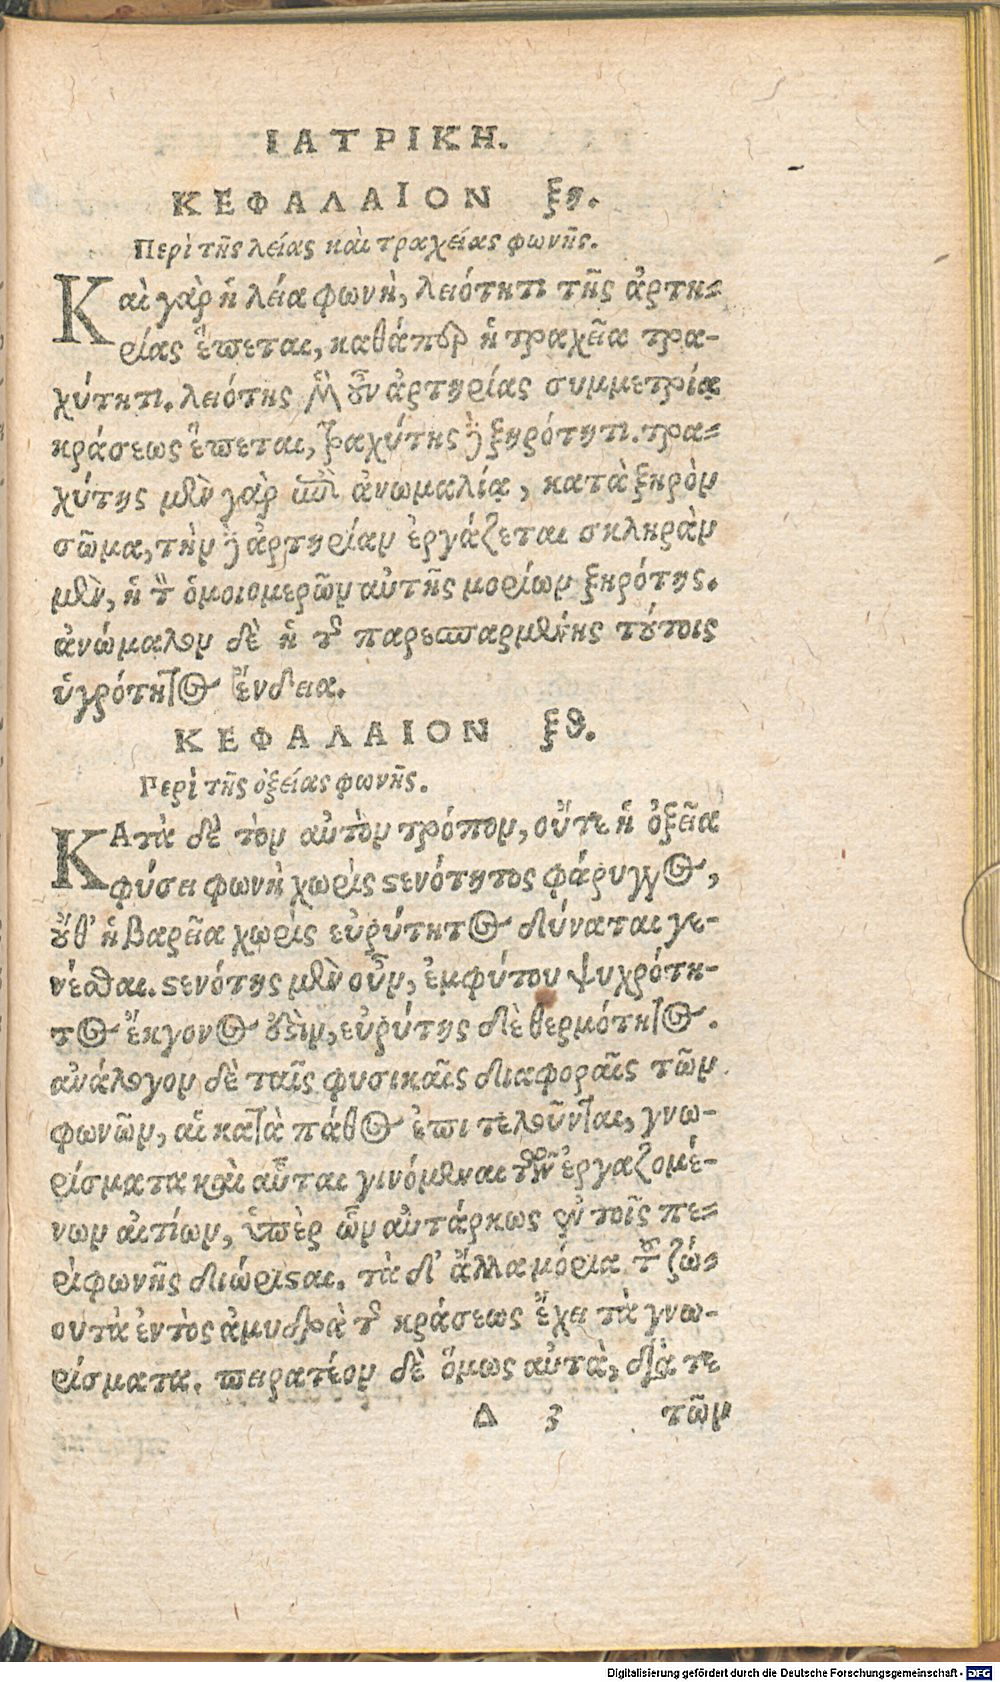 ΙΑΤΡΙΚΗ.
ΚΕΦΑΛΑΙΟΝ ξη.
Περὶ τῆς λείας καὶ τραχείας φωνῆς.
Καὶ γὰρ ἡ λεία φωνὴ, λειότητι τῆς ἀρτη-
ρίας ἕπεται, καθάπερ ἡ τραχεῖα τρα-
χύτητι. λειότης μὲν οὖν ἀρτηρίας συμμετρίᾳ
κράσεως ἕπεται, τραχύτης δὲ ξηρότητι. τρα-
χύτης μὲν γὰρ ἐστὶν ἀνωμαλίᾳ, κατὰ ξηρὸν
σῶμα, τὴν δὲ ἀρτηρίαν ἐργάζεται σκληρὰν
μὲν, ἡ τῶν ὁμοιομερῶν αὐτῆς μορίων ξηρότης.
ἀνώμαλον δὲ ἡ τῆς παρεσπαρμένης τούτοις
ὑγρότητος ἔνδεια.
ΚΕΦΑΛΑΙΟΝ ξθ.
Περὶ τῆς ὀξείας φωνῆς.
ΚΑτὰ δὲ τὸν αὐτὸν τρόπον, οὔτε ἡ ὀξεῖα
φύσει φωνὴ χωρὶς στενότητος φάρυγγος,
οὔθ' ἡ βαρεῖα χωρὶς εὐρύτητος δύναται γε-
νέσθαι. στενότης μὲν οὖν, ἐμφύτου ψυχρότη-
τος ἔκγονος οὖσιν, εὐρύτης δὲ θερμότητος.
ἀνάλογον δὲ ταῖς φυσικαῖς διαφοραῖς τῶν
φωνῶν, αἱ κατὰ πάθος ἐπιτελοῦνται, γνω-
ρίσματα καὶ αὗται γινόμεναι τῶν ἐργαζομέ-
νων αἰτίων, ὑπὲρ ὧν αὐτάρκως ἐν τοῖς πε-
ρὶ φωνῆς διώρισται. τὰ δ' ἄλλα μόρια τοῦ ζώ-
ου τὰ ἐντὸς ἀμυδρὰ τῆς κράσεως ἔχει τὰ γνω-
ρίσματα. πειρατέον δὲ ὅμως αὐτὰ, διά τε
Δ 3 τῶν
Digitalisierung gefördert durch die Deutsche Forschungsgemeinschaft - DFG